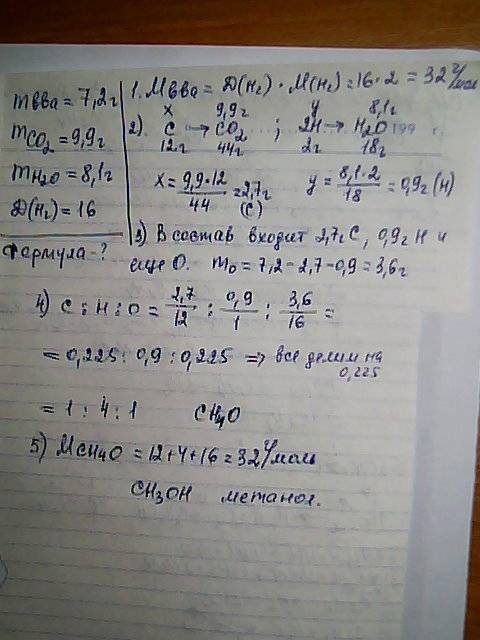 mвва = 7,2г
mCO₂ = 9,9г
mH₂O = 8,1г
D(H₂) = 16
Формула - ?
1. Mвва = D(H₂) · M(H₂) = 16 · 2 = 32 г/моль
x 9,9г y 8,1г
2). C → CO₂ ; 2H → H₂O
12г 44г 2г 18г
x = 9,9·12/44 = 2,7г (C) y = 8,1·2/18 = 0,9г (H)
3) В состав входит 2,7г C, 0,9г H и
еще O. mO = 7,2 - 2,7 - 0,9 = 3,6г
4) C : H : O = 2,7/12 : 0,9/1 : 3,6/16 =
= 0,225 : 0,9 : 0,225 => все делим на
0,225
= 1 : 4 : 1 CH₄O
5) MCH₄O = 12 + 4 + 16 = 32 г/моль
CH₃OH метанол.